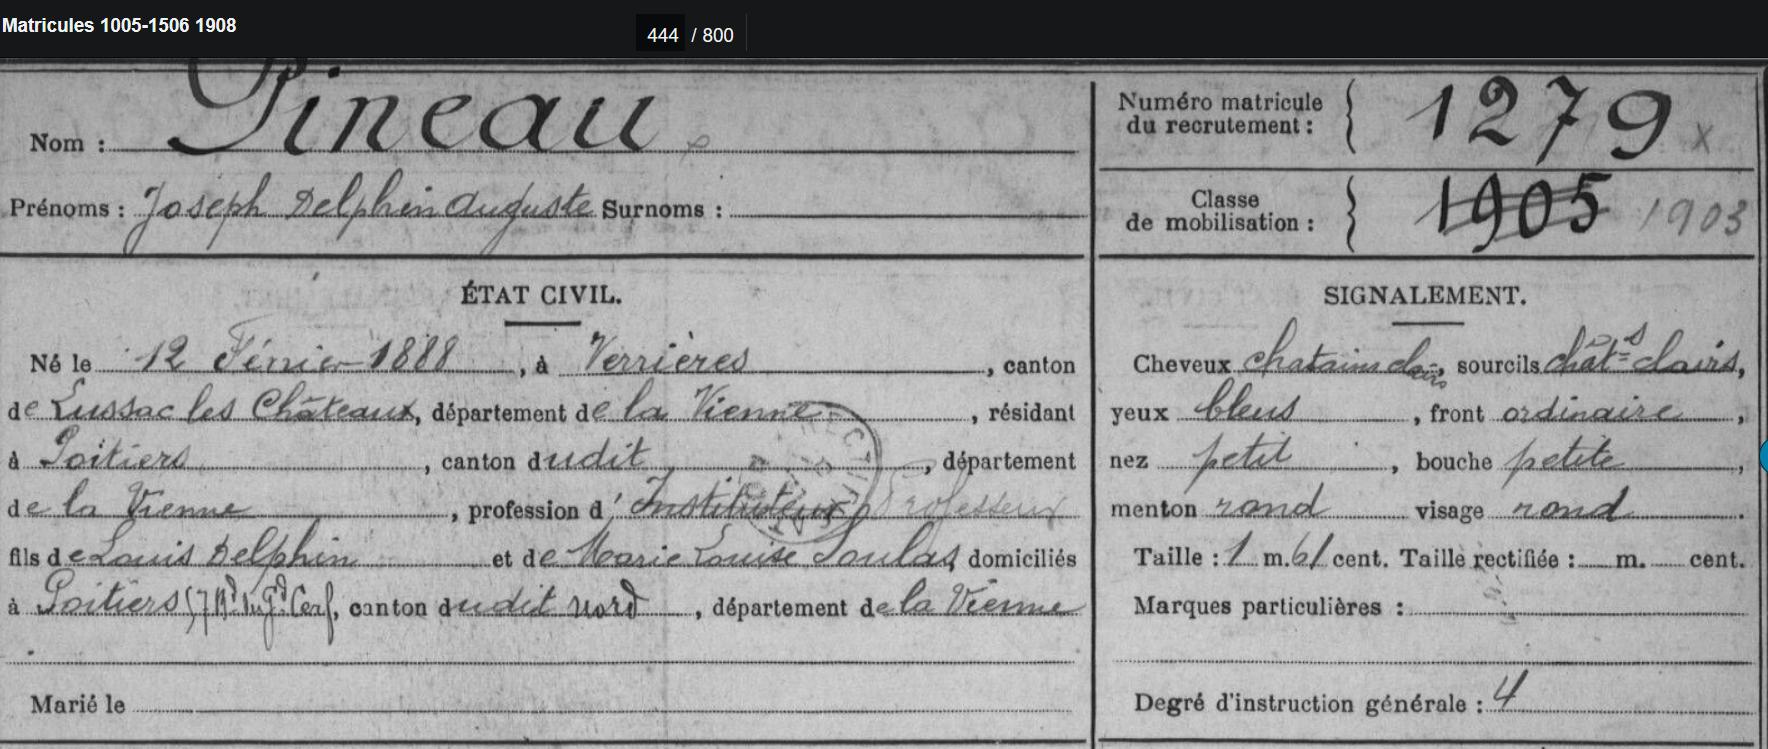 Matricules 1005-1506 1908
444 / 800
Nom : Pineau
Numéro matricule
du recrutement : 1279 x
Prénoms : Joseph Delphin Auguste Surnoms :
Classe
de mobilisation : 1905 1903
ÉTAT CIVIL.
SIGNALEMENT.
Né le 12 Février 1888, à Verrières, canton
de Lussac les Châteaux, département de la Vienne, résidant
à Poitiers, canton dudit, département
de la Vienne, profession d'Instituteur Professeur
fils de Louis Delphin et de Marie Louise Soulas, domiciliés
à Poitiers (7 Bd du Gd Cerf, canton dudit nord, département de la Vienne
Marié le
Cheveux chatains clairs, sourcils chât=s clairs,
yeux bleus, front ordinaire,
nez petit, bouche petite,
menton rond visage rond.
Taille : 1 m. 61 cent. Taille rectifiée : m. cent.
Marques particulières :
Degré d'instruction générale : 4